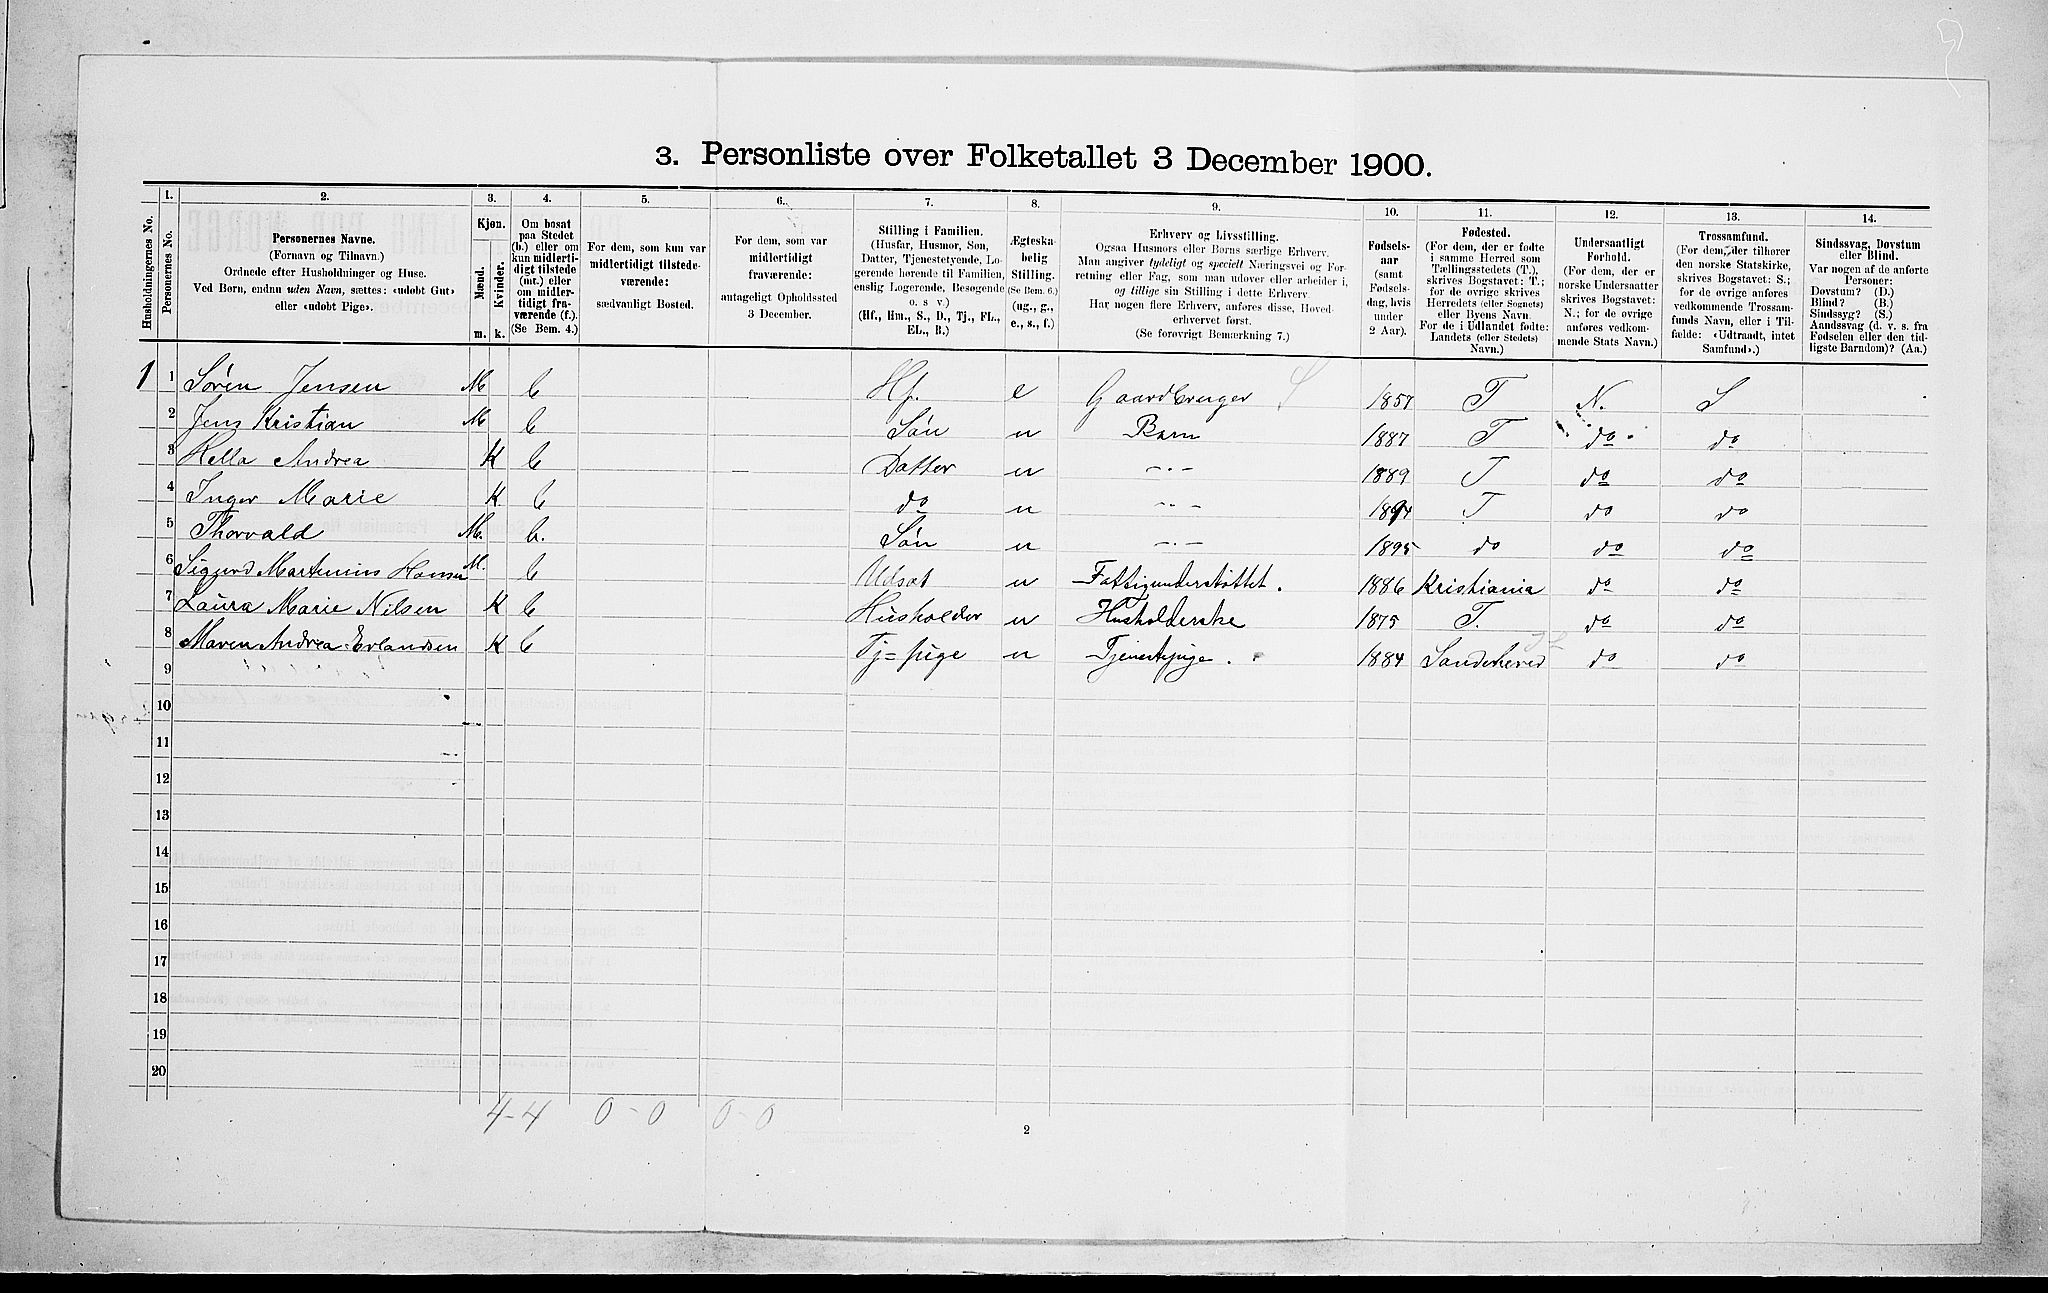 3. Personliste over Folketallet 3 December 1900.
Husholdningernes No.
1.
Personernes No.
2.
Personernes Navne.
(Fornavn og Tilnavn.)
Ordnede efter Husholdninger og Huse.
Ved Børn, endnu uden Navn, sættes: «udøbt Gut»
eller «udøbt Pige».
3.
Kjøn.
Mænd.
Kvinder.
m. k.
4.
Om bosat
paa Stedet
(b.) eller om
kun midlerti-
digt tilstede
(mt.) eller
om midler-
tidigt fra-
værende (f.).
(Se Bem. 4.)
5.
For dem, som kun var
midlertidigt tilstede-
værende:
sædvanligt Bosted.
6.
For dem, som var
midlertidigt
fraværende:
antageligt Opholdssted
3 December.
7.
Stilling i Familien.
(Husfar, Husmor, Søn,
Datter, Tjenestetyende, Lo-
gerende hørende til Familien,
enslig Logerende, Besøgende
o. s v.)
(Hf., Hm., S., D., Tj., FL.,
EL., B.)
8.
Ægteska-
belig
Stilling.
(Se Bem. 6.)
(ug., g.,
e., s., f.)
9.
Erhverv og Livsstilling.
Ogsaa Husmors eller Børns særlige Erhverv.
Man angiver tydeligt og specielt Næringsvei og For-
retning eller Fag, som man udøver eller arbeider i,
og tillige sin Stilling i dette Erhverv.
Har nogen flere Erhverv, anføres disse, Hoved-
erhvervet først.
(Se forøvrigt Bemærkning 7.)
10.
Fødsels-
aar
(samt
Fødsels-
dag, hvis
under
2 Aar).
11.
Fødested.
(For dem, der er fødte
i samme Herred som
Tællingsstedets (T.),
skrives Bogstavet: T.;
for de øvrige skrives
Herredets (eller Sognets)
eller Byens Navn.
For de i Udlandet fødte:
Landets (eller Stedets)
Navn.)
12.
Undersaatligt
Forhold.
(For dem, der er
norske Undersaatter
skrives Bogstavet:
N.; for de øvrige
anføres vedkom-
mende Stats Navn.)
13.
Trossamfund.
(For dem, der tilhører
den norske Statskirke,
skrives Bogstavet: S.;
for de øvrige anføres
vedkommende Trossam-
funds Navn, eller i Til-
fælde: «Udtraadt, intet
Samfund».)
14.
Sindssvag, Døvstum
eller Blind.
Var nogen af de anførte
Personer:
Døvstum? (D.)
Blind? (B.)
Sindssyg? (S.)
Aandssvag (d. v. s. fra
Fødselen eller den tid-
ligste Barndom)? (Aa.)
1 1 Søren Jensen M b Hf. e Gaardbruger S 1857 T N. S
2 Jens Kristian M b Søn u Barn 1887 T do do
3 Hella Andrea K b Datter u -"- 1889 T do do
4 Inger Marie K b do u -"- 1894 T do do
5 Thorvald M. b. Søn u -"- 1895 do do do
6 Sigurd Martinius Hansen M. b Udsat u Fattigunderstøttet. 1886 Kristiania do do
7 Laura Marie Nilsen K b Husholder u Husholderske 1875 T. do do
8 Maren Andrea Erlandsen K b Tj=pige u Tjenestepige. 1884 Sandeherred do do
9
10
11
12
13
14
15
16
17
18
19
20
4-4 0-0 0-0
2